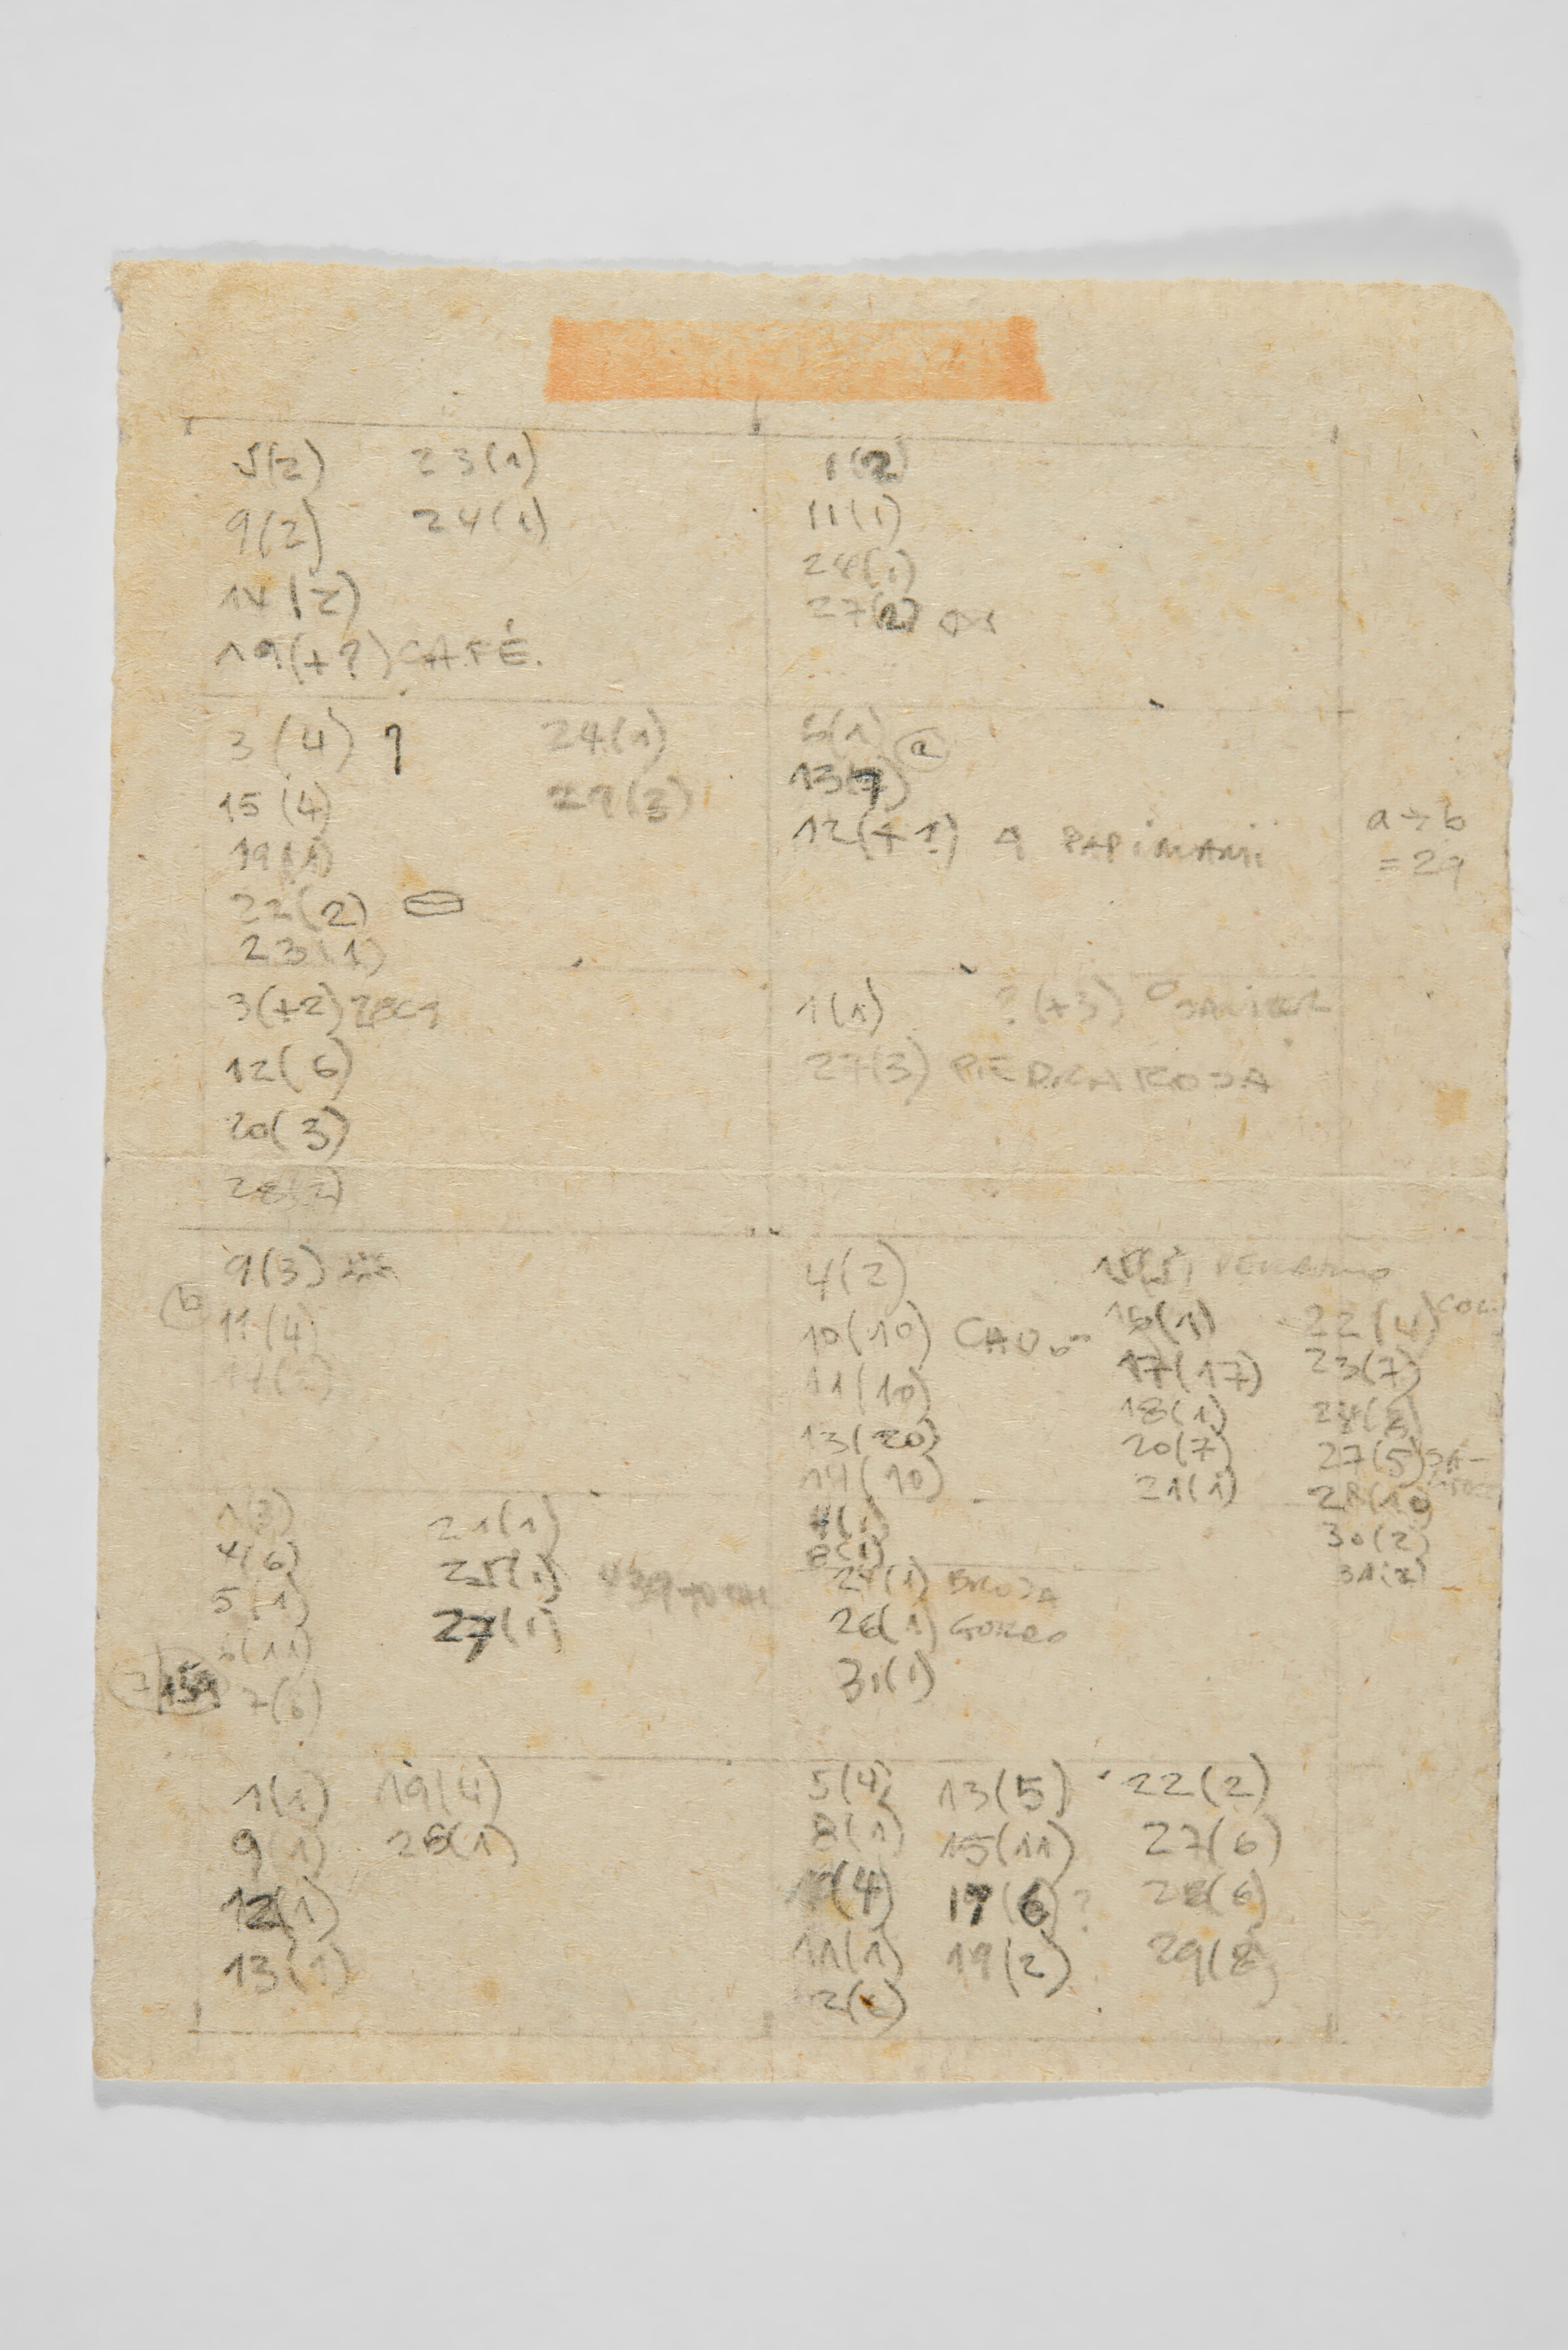 5(2) 23(1)
9(2) 24(1)
14(2)
19(+?) CAFÉ.
1(2)
11(1)
24(1)
27(2)
3(4) 24(1)
15(4) 29(3)
19(1)
22(2)
23(1)
6(1) a
13(7)
12(+1?) A PAPIMAMI
a→b
=29
3(+2)
12(6)
20(3)
28(2)
1(1) ?(+3) JAVIER
27(3) PIEDRA ROJA
9(3)
b 11(4)
4(2)
10(10)
11(10)
13(20)
14(10)
16(1)
17(17)
18(1)
20(7)
21(1)
22(4)
23(7)
27(5)
28(10)
30(2)
1(3) 21(1)
4(6) 25(1)
5(1) 27(1)
6(11)
7(6)
8(1)
24(1)
26(1) GORRO
31(1)
1(1) 19(4)
9(1) 26(1)
12(1)
13(1)
5(4) 13(5) 22(2)
8(1) 15(11) 27(6)
17(6)? 28(6)
11(1) 19(2) 29(8)